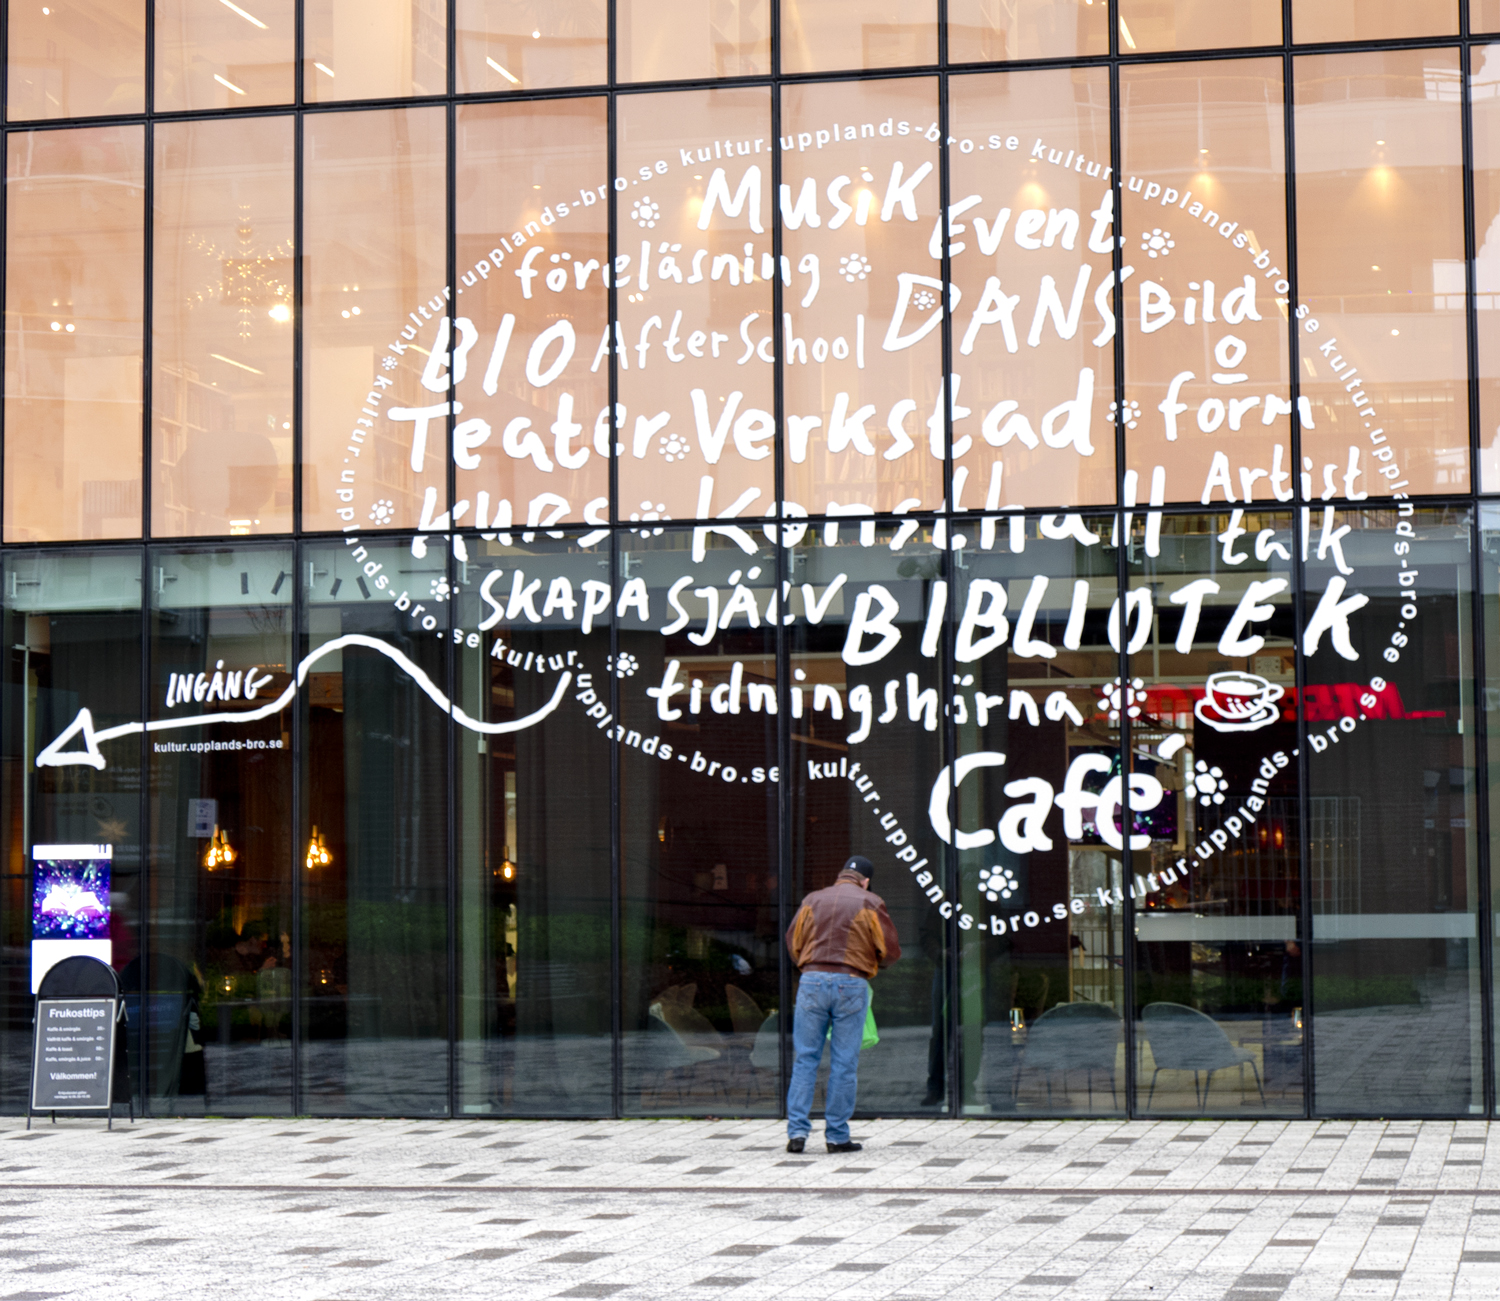 kultur.upplands-bro.se kultur.upplands-bro.se kultur.upplands-bro.se kultur.upplands-bro.se kultur.upplands-bro.se kultur.upplands-bro.se kultur.upplands-bro.se kultur.upplands-bro.se kultur.upplands-bro.se
Musik
Event
föreläsning
DANS
Bild
BIO
AfterSchool
o
Teater
Verkstad
form
kurs
Konsthall
Artist
talk
SKAPA SJÄLV
BIBLIOTEK
tidningshörna
Café
INGÅNG
kultur.upplands-bro.se
Frukosttips
Kaffe & smörgås
Kaffe & toast
Kaffe, smörgås & juice
Välkommen!